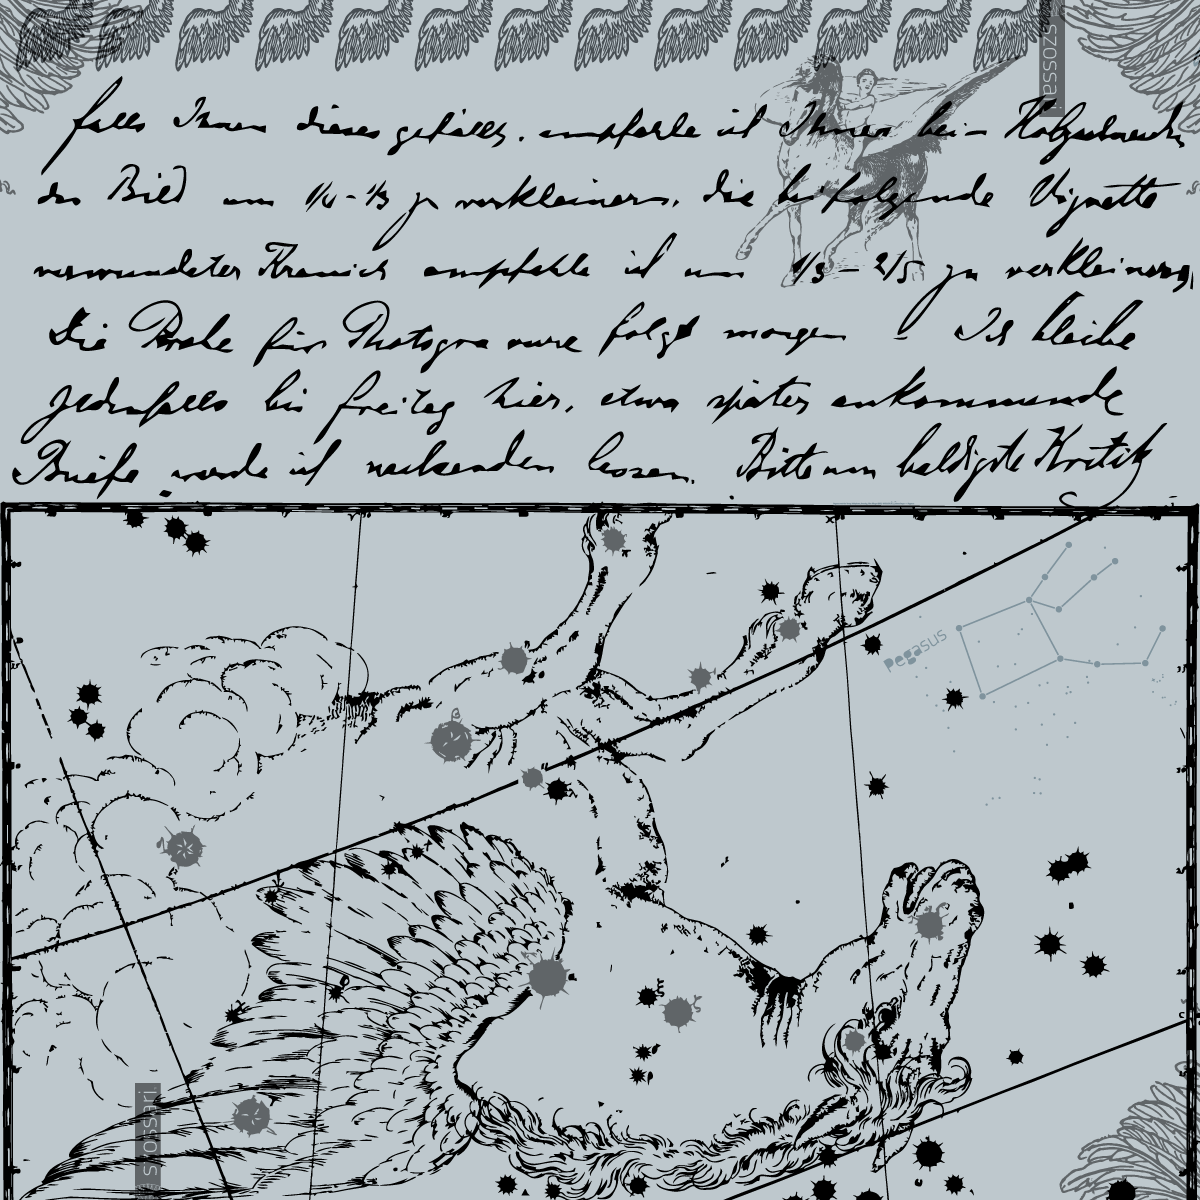 szossari
falls Ihnen dieses gefällt. empfehle ich Ihnen beim Holzschneiden
das Bild um 1/4 - 1/3 zu verkleinern, die beifolgende Vignette
verwundeter Kranich empfehle ich um 1/3 – 2/5 zu verkleinern,
Die Probe für Photogravure folgt morgen! Ich bleibe
jedenfalls bis freitag hier, etwa später ankommende
Briefe werde ich nachsenden lassen. Bitte um baldigste Kritik
Pegasus
szossari